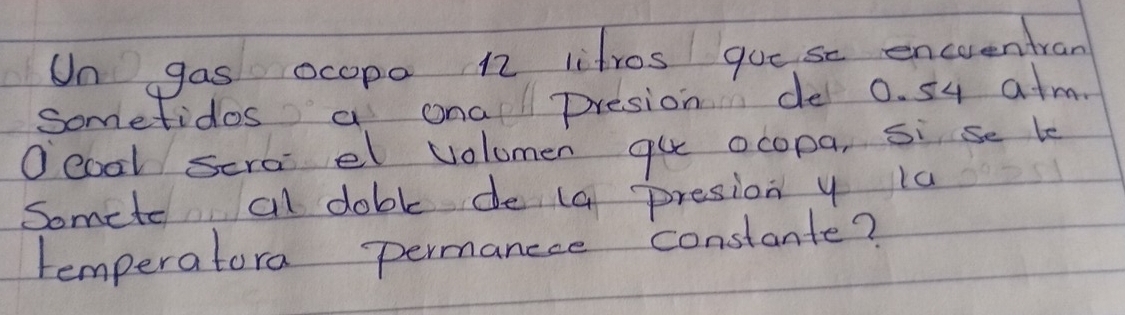 Un gas ocopa 12 litros que se encuentran
Sometidos a ona Presion de 0.54 atm.
O'coal sera el volomen que ocopa, si se le
Somete al doble de la presion y la
temperatora permanece constante?